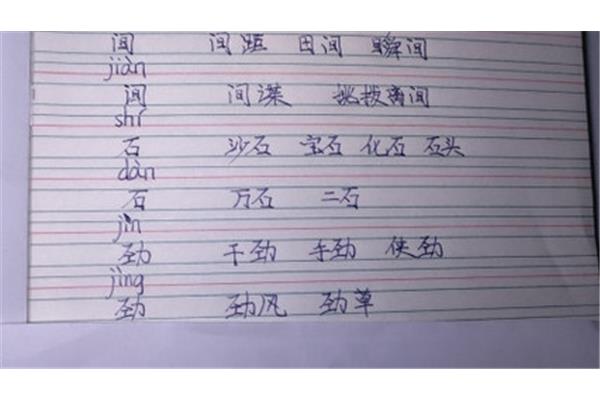 间 间距 田间 瞬间
jiàn
间 间谍 挑拨离间
shí
石 沙石 宝石 化石 石头
dàn
石 万石 二石
jìn
劲 干劲 手劲 使劲
jìng
劲 劲风 劲草